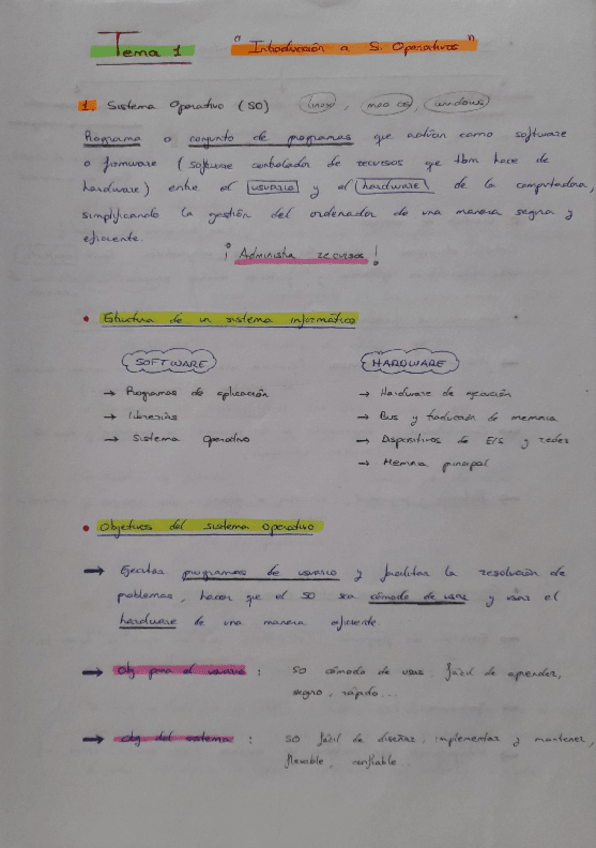 Tema 1 "Introducción a S. Operativos"
1. Sistema Operativo (SO) (linux), (mac os), (windows)
Programa o conjunto de programas que actúan como software
o firmware (software controlador de recursos que tbm hace de
hardware) entre el usuario y el hardware de la computadora,
simplificando la gestión del ordenador de una manera segura y
eficiente.
¡Administra recursos!
• Estructura de un sistema informático
SOFTWARE HARDWARE
→ Programas de aplicación → Hardware de ejecución
→ librerías → Bus y traducción de memoria
→ Sistema operativo → Dispositivos de E/S y redes
→ Memoria principal
• Objetivos del sistema operativo
→ Ejecutar programas de usuario y facilitar la resolución de
problemas, hacer que el SO sea cómodo de usar y usar el
hardware de una manera eficiente.
→ Obj. para el usuario : SO cómodo de usar, fácil de aprender,
seguro, rápido...
→ Obj. del sistema : SO fácil de diseñar, implementar y mantener,
flexible, confiable...